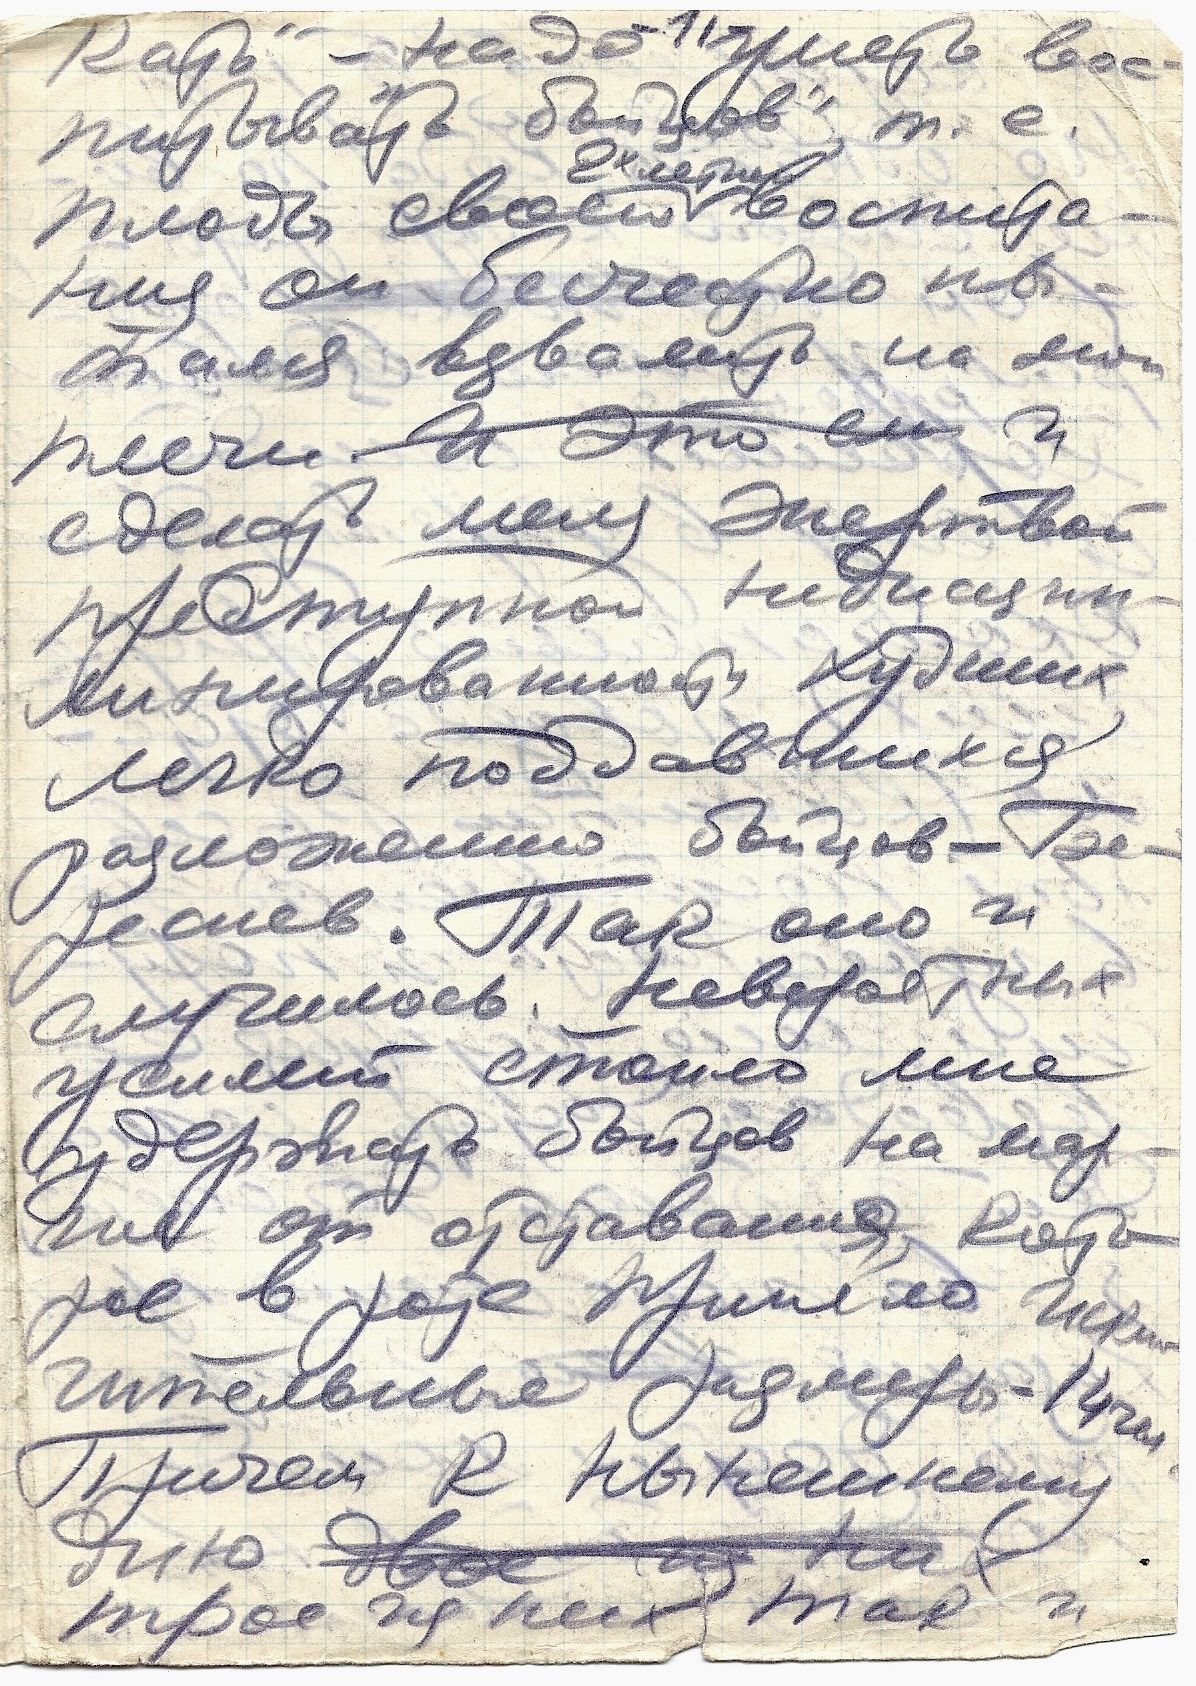 -11-
кать" – надо уметь вос-
питывать "бойцов", т. е.
2х летн
плоды своего воспита-
ния он бесчестно пы-
тался взвалить на мои
плечи и это он и
сделать меня жертвой
преступной недисцип-
линированности худших
легко поддавшихся
разложению бойцов –
Так оно и
случилось. Невероятных
усилий стоило мне
удержать бойцов на мар-
ше от отставания, кото-
рое в роте приняло
размеры – 14 чел
Причем к нынешнему
дню двое из них
трое из них так и